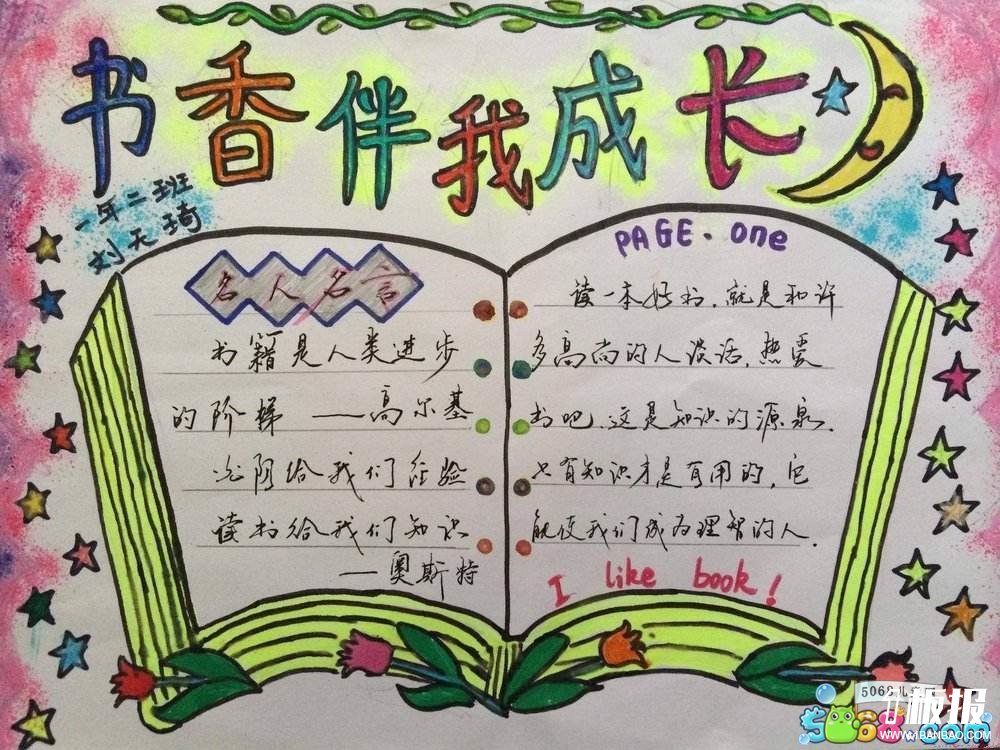 书香伴我成长
一年二班
刘天琦
名人名言
书籍是人类进步
的阶梯——高尔基
光阴给我们经验
读书给我们知识
——奥斯特
PAGE.one
读一本好书,就是和许
多高尚的人谈话,热爱
书吧,这是知识的源泉,
只有知识才是有用的,它
能使我们成为理智的人.
I like book!
5068儿
5068.com
板报
WWW.1BANBAO.COM